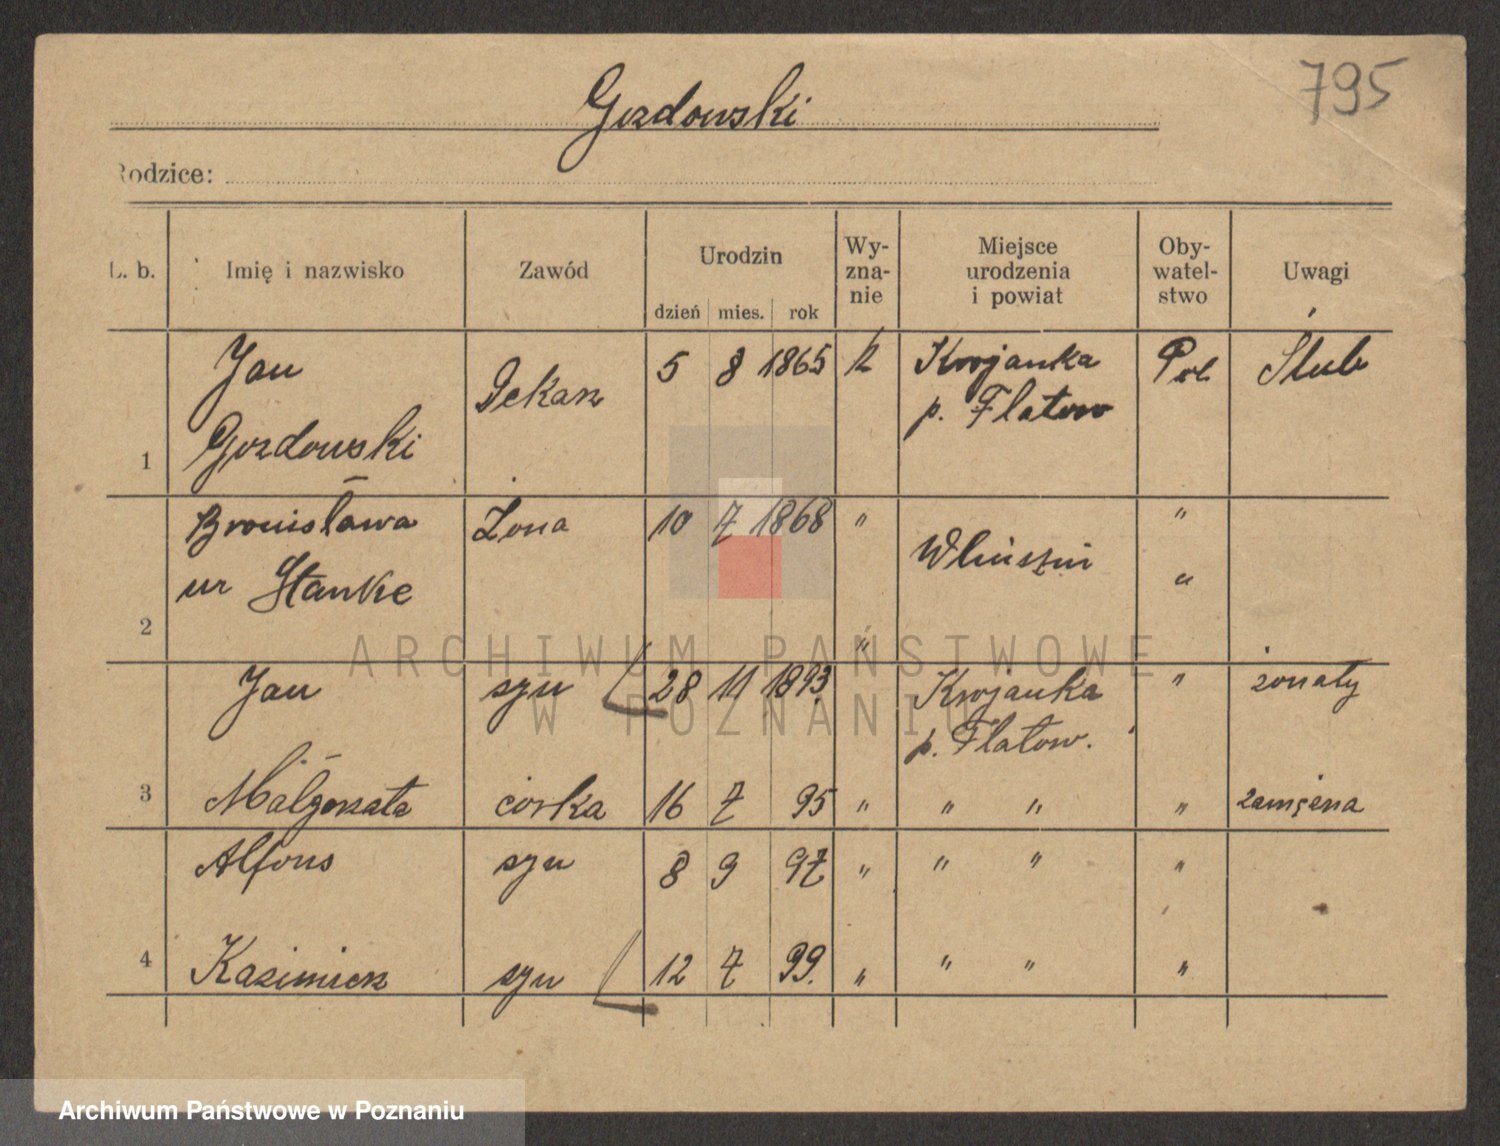 795
Gozdowski
Rodzice:
L. b. Imię i nazwisko Zawód Urodzin dzień mies. rok Wy-zna-nie Miejsce urodzenia i powiat Oby-watel-stwo Uwagi
Jan 5 8 1865 k Krojanka Pol Ślub
p. Flatow
1 Gozdowski
Bronisława Żona 10 7 1868 " "
ur Stanke "
2 "
Jan syn 28 11 1893 Krojanka " żonaty
p. Flatow.
3 Małgorzata córka 16 7 95 " " " "
Alfons syn 8 9 97 " " " "
4 Kazimierz syn 12 7 99. " " " "
ARCHIWUM PAŃSTWOWE
W POZNANIU
Archiwum Państwowe w Poznaniu